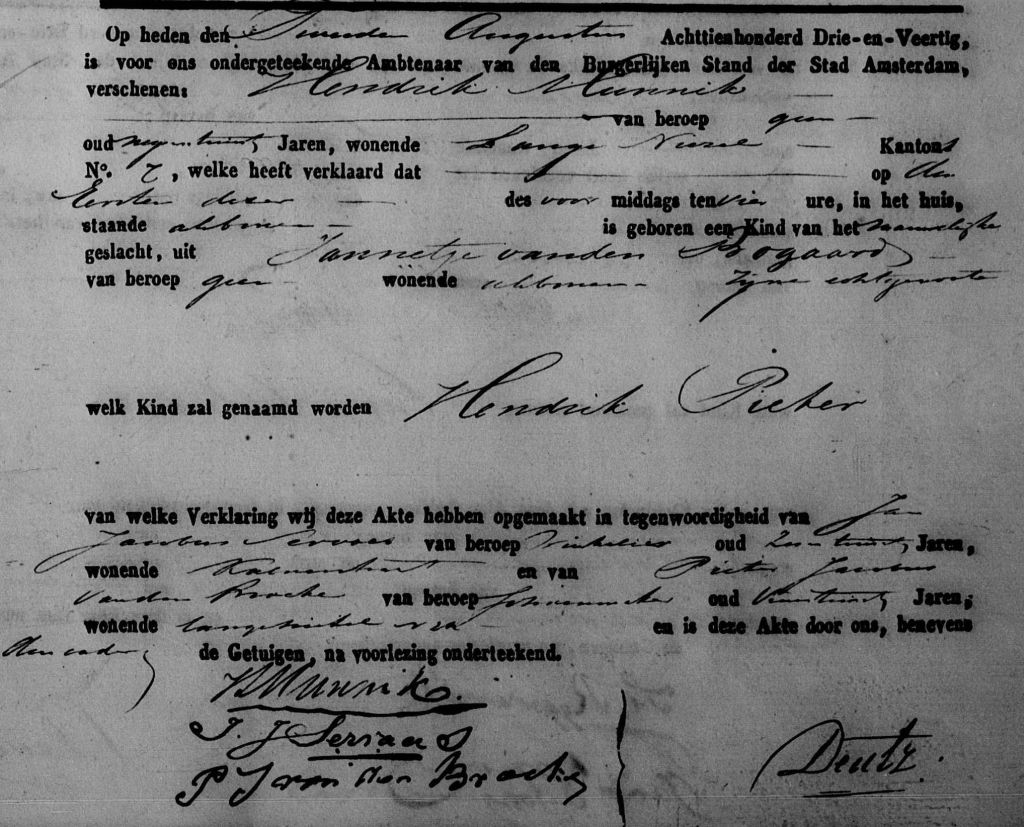 Op heden den Tweede Augustus Achttienhonderd Drie-en-Veertig,
is voor ons ondergeteekende Ambtenaar van den Burgerlijken Stand der Stad Amsterdam,
verschenen: Hendrik Munnik
van beroep geen
oud negentwintig Jaren, wonende Lange Niezel Kanton
No. 7, welke heeft verklaard dat op den
Eersten dezer des voor middags ten vier ure, in het huis,
staande alsboven is geboren een Kind van het mannelijke
geslacht, uit Jannetje van den Bogaard
van beroep geen wonende alsboven zijne echtgenoote
welk Kind zal genaamd worden Hendrik Pieter
van welke Verklaring wij deze Akte hebben opgemaakt in tegenwoordigheid van Jan
Jacobus van beroep oud Jaren,
wonende Kalverstraat en van Pieter Jacobus
van den Broeke van beroep Schoenmaker oud Jaren,
wonende en is deze Akte door ons, benevens
den vader de Getuigen, na voorlezing onderteekend.
H Munnik.
J. J Servaas
P J van den Broeke
Deutz.